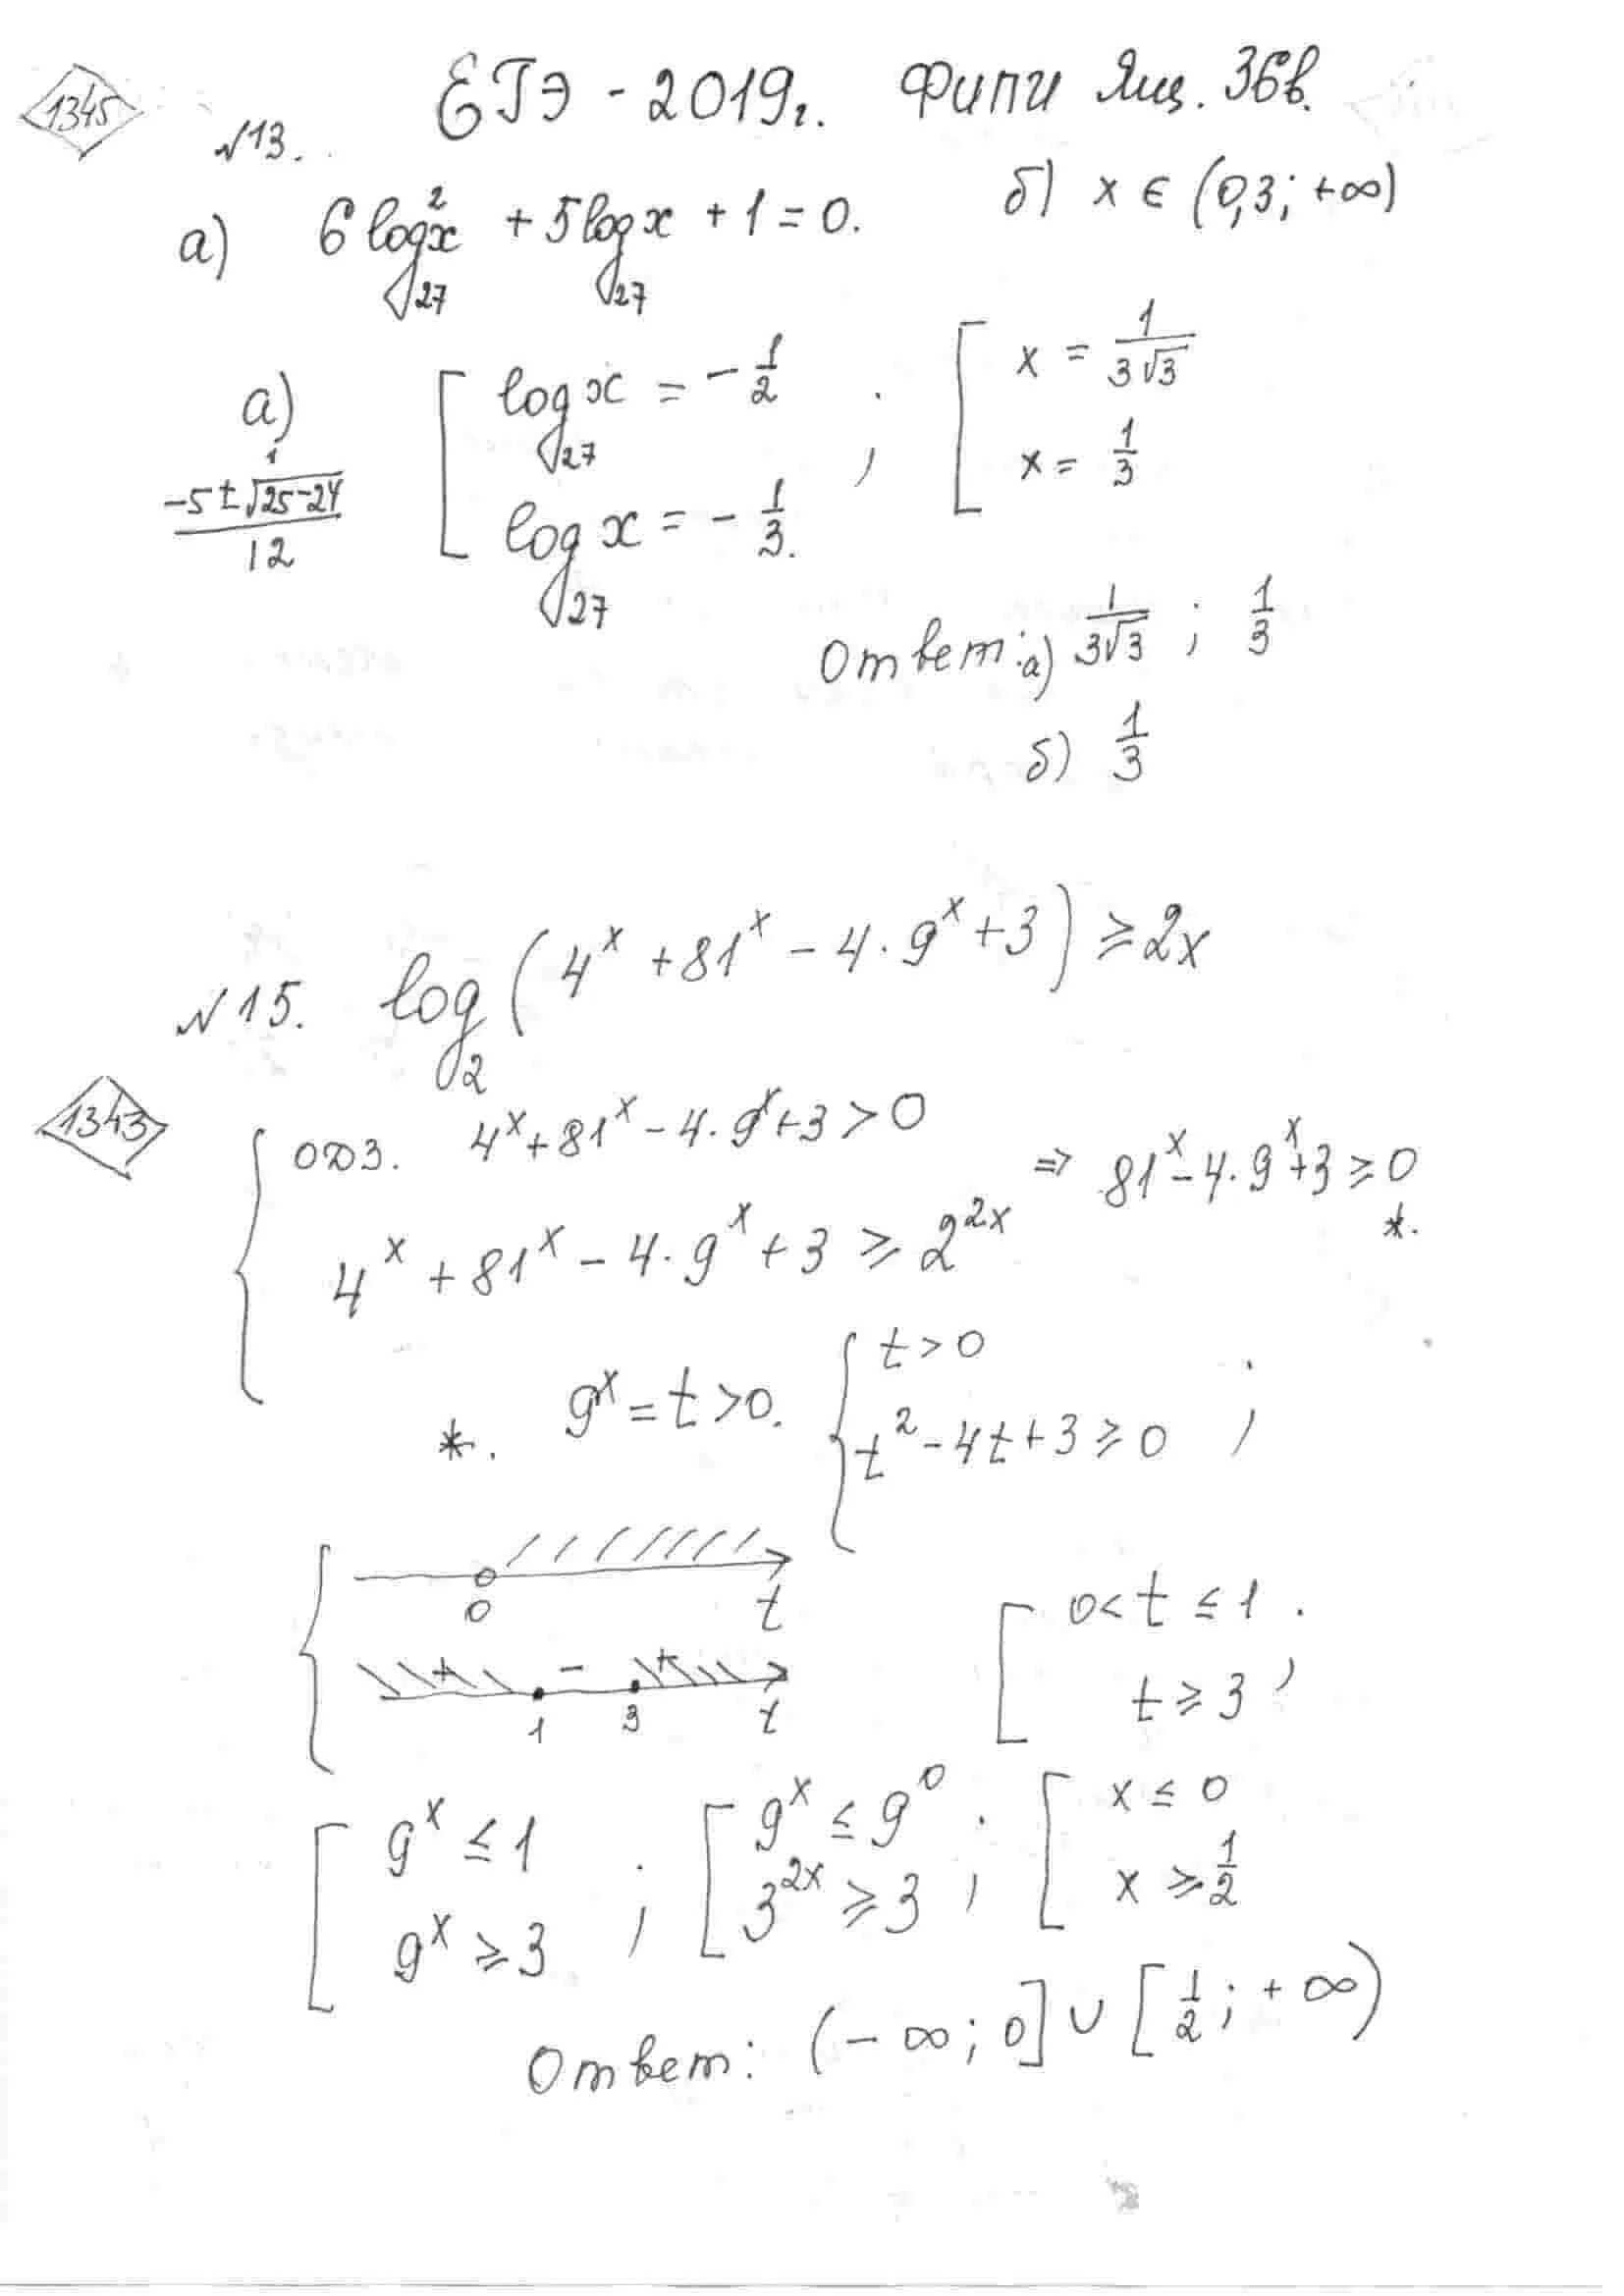 1345
ЕГЭ - 2019г. ФИПИ Ящ. 36в.
№13.
а) 6 log²₂₇ x + 5 log₂₇ x + 1 = 0.
б) x ∈ (0,3; +∞)
а)
[ log₂₇ x = -1/2 ; [ x = 1/(3√3)
(-5 ± √(25-24))/12 1
log₂₇ x = -1/3. x = 1/3
Ответ: а) 1/(3√3) ; 1/3
б) 1/3
№15. log₂ (4^x + 81^x - 4·9^x + 3) ≥ 2x
1343
{ ОДЗ. 4^x + 81^x - 4·9^x + 3 > 0
4^x + 81^x - 4·9^x + 3 ≥ 2^(2x) ⇒ 81^x - 4·9^x + 3 ≥ 0
*.
*. 9^x = t > 0. { t > 0
t² - 4t + 3 ≥ 0 ;
0 t
+ - +
1 3 t
[ 0 < t ≤ 1 ;
t ≥ 3
[ 9^x ≤ 1 ; [ 9^x ≤ 9^0 ; [ x ≤ 0
9^x ≥ 3 3^(2x) ≥ 3 x ≥ 1/2
Ответ: (-∞; 0] ∪ [1/2; +∞)